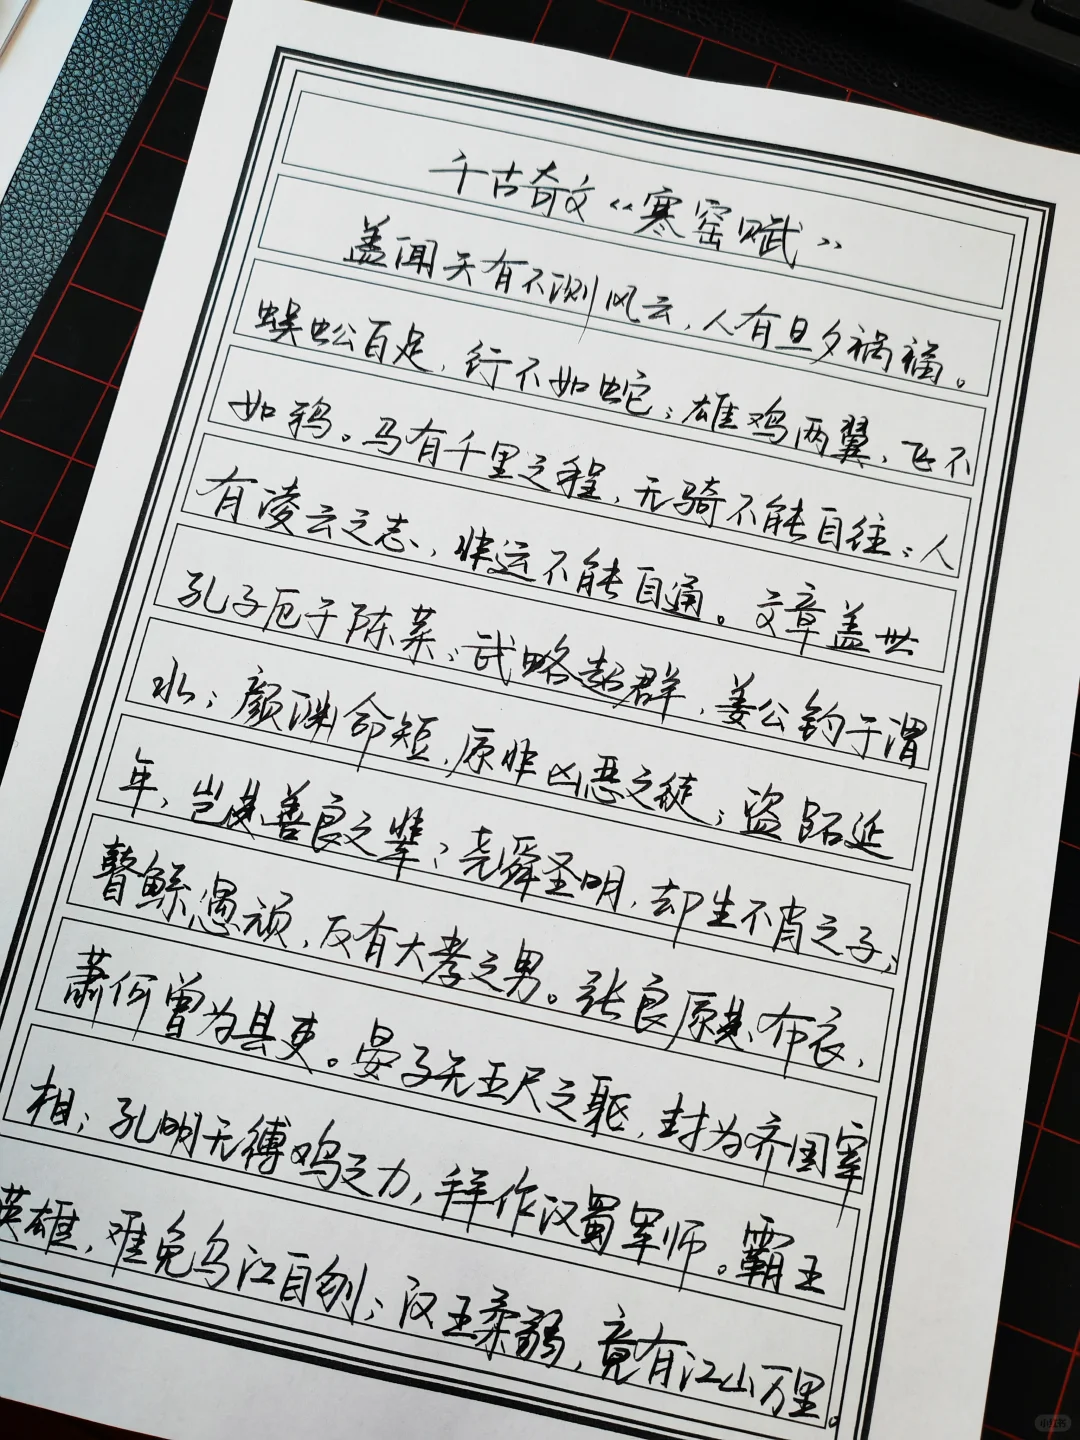 千古奇文《寒窑赋》
盖闻天有不测风云，人有旦夕祸福。
蜈蚣百足，行不如蛇；雄鸡两翼，飞不
如鸦。马有千里之程，无骑不能自往；人
有凌云之志，非运不能自通。文章盖世
孔子厄于陈蔡；武略超群，姜公钓于渭
水；颜渊命短，原非凶恶之徒；盗跖延
年，岂是善良之辈；尧舜圣明，却生不肖之子；
瞽鲧愚顽，反有大孝之男。张良原是布衣，
萧何曾为县吏。晏子无五尺之躯，封为齐国宰
相；孔明无缚鸡之力，拜作汉蜀军师。霸王
英雄，难免乌江自刎；汉王柔弱，竟有江山万里。
小红书